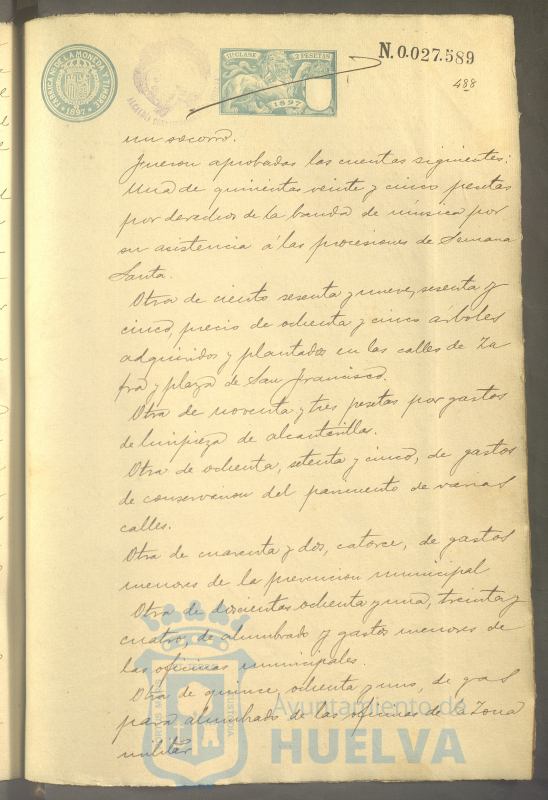 FABRICA Nl. DE LA MONEDA Y TIMBRE
1897
11ª CLASE 2 PESETAS
1897
N.0.027.589
488
un socorro.
Fueron aprobadas las cuentas siguientes:
Una de quinientas veinte y cinco pesetas
por derechos de la banda de música por
su asistencia á las procesiones de Semana
Santa.
Otra de ciento sesenta y nueve, sesenta y
cinco, precio de ochenta y cinco árboles
adquiridos y plantados en las calles de Za
fra y plaza de San Francisco.
Otra de noventa y tres pesetas por gastos
de limpieza de alcantarillas.
Otra de ochenta, setenta y cinco, de gastos
de conservacion del pavimento de varias
calles.
Otra de cuarenta y dos, catorce, de gastos
menores de la prevencion municipal
Otra de doscientas ochenta y una, treinta y
cuatro, de alumbrado y gastos menores de
las oficinas municipales.
Otra de quince, ochenta y uno, de gas
para alumbrado de las oficinas de la Zona
militar
Ayuntamiento de
HUELVA